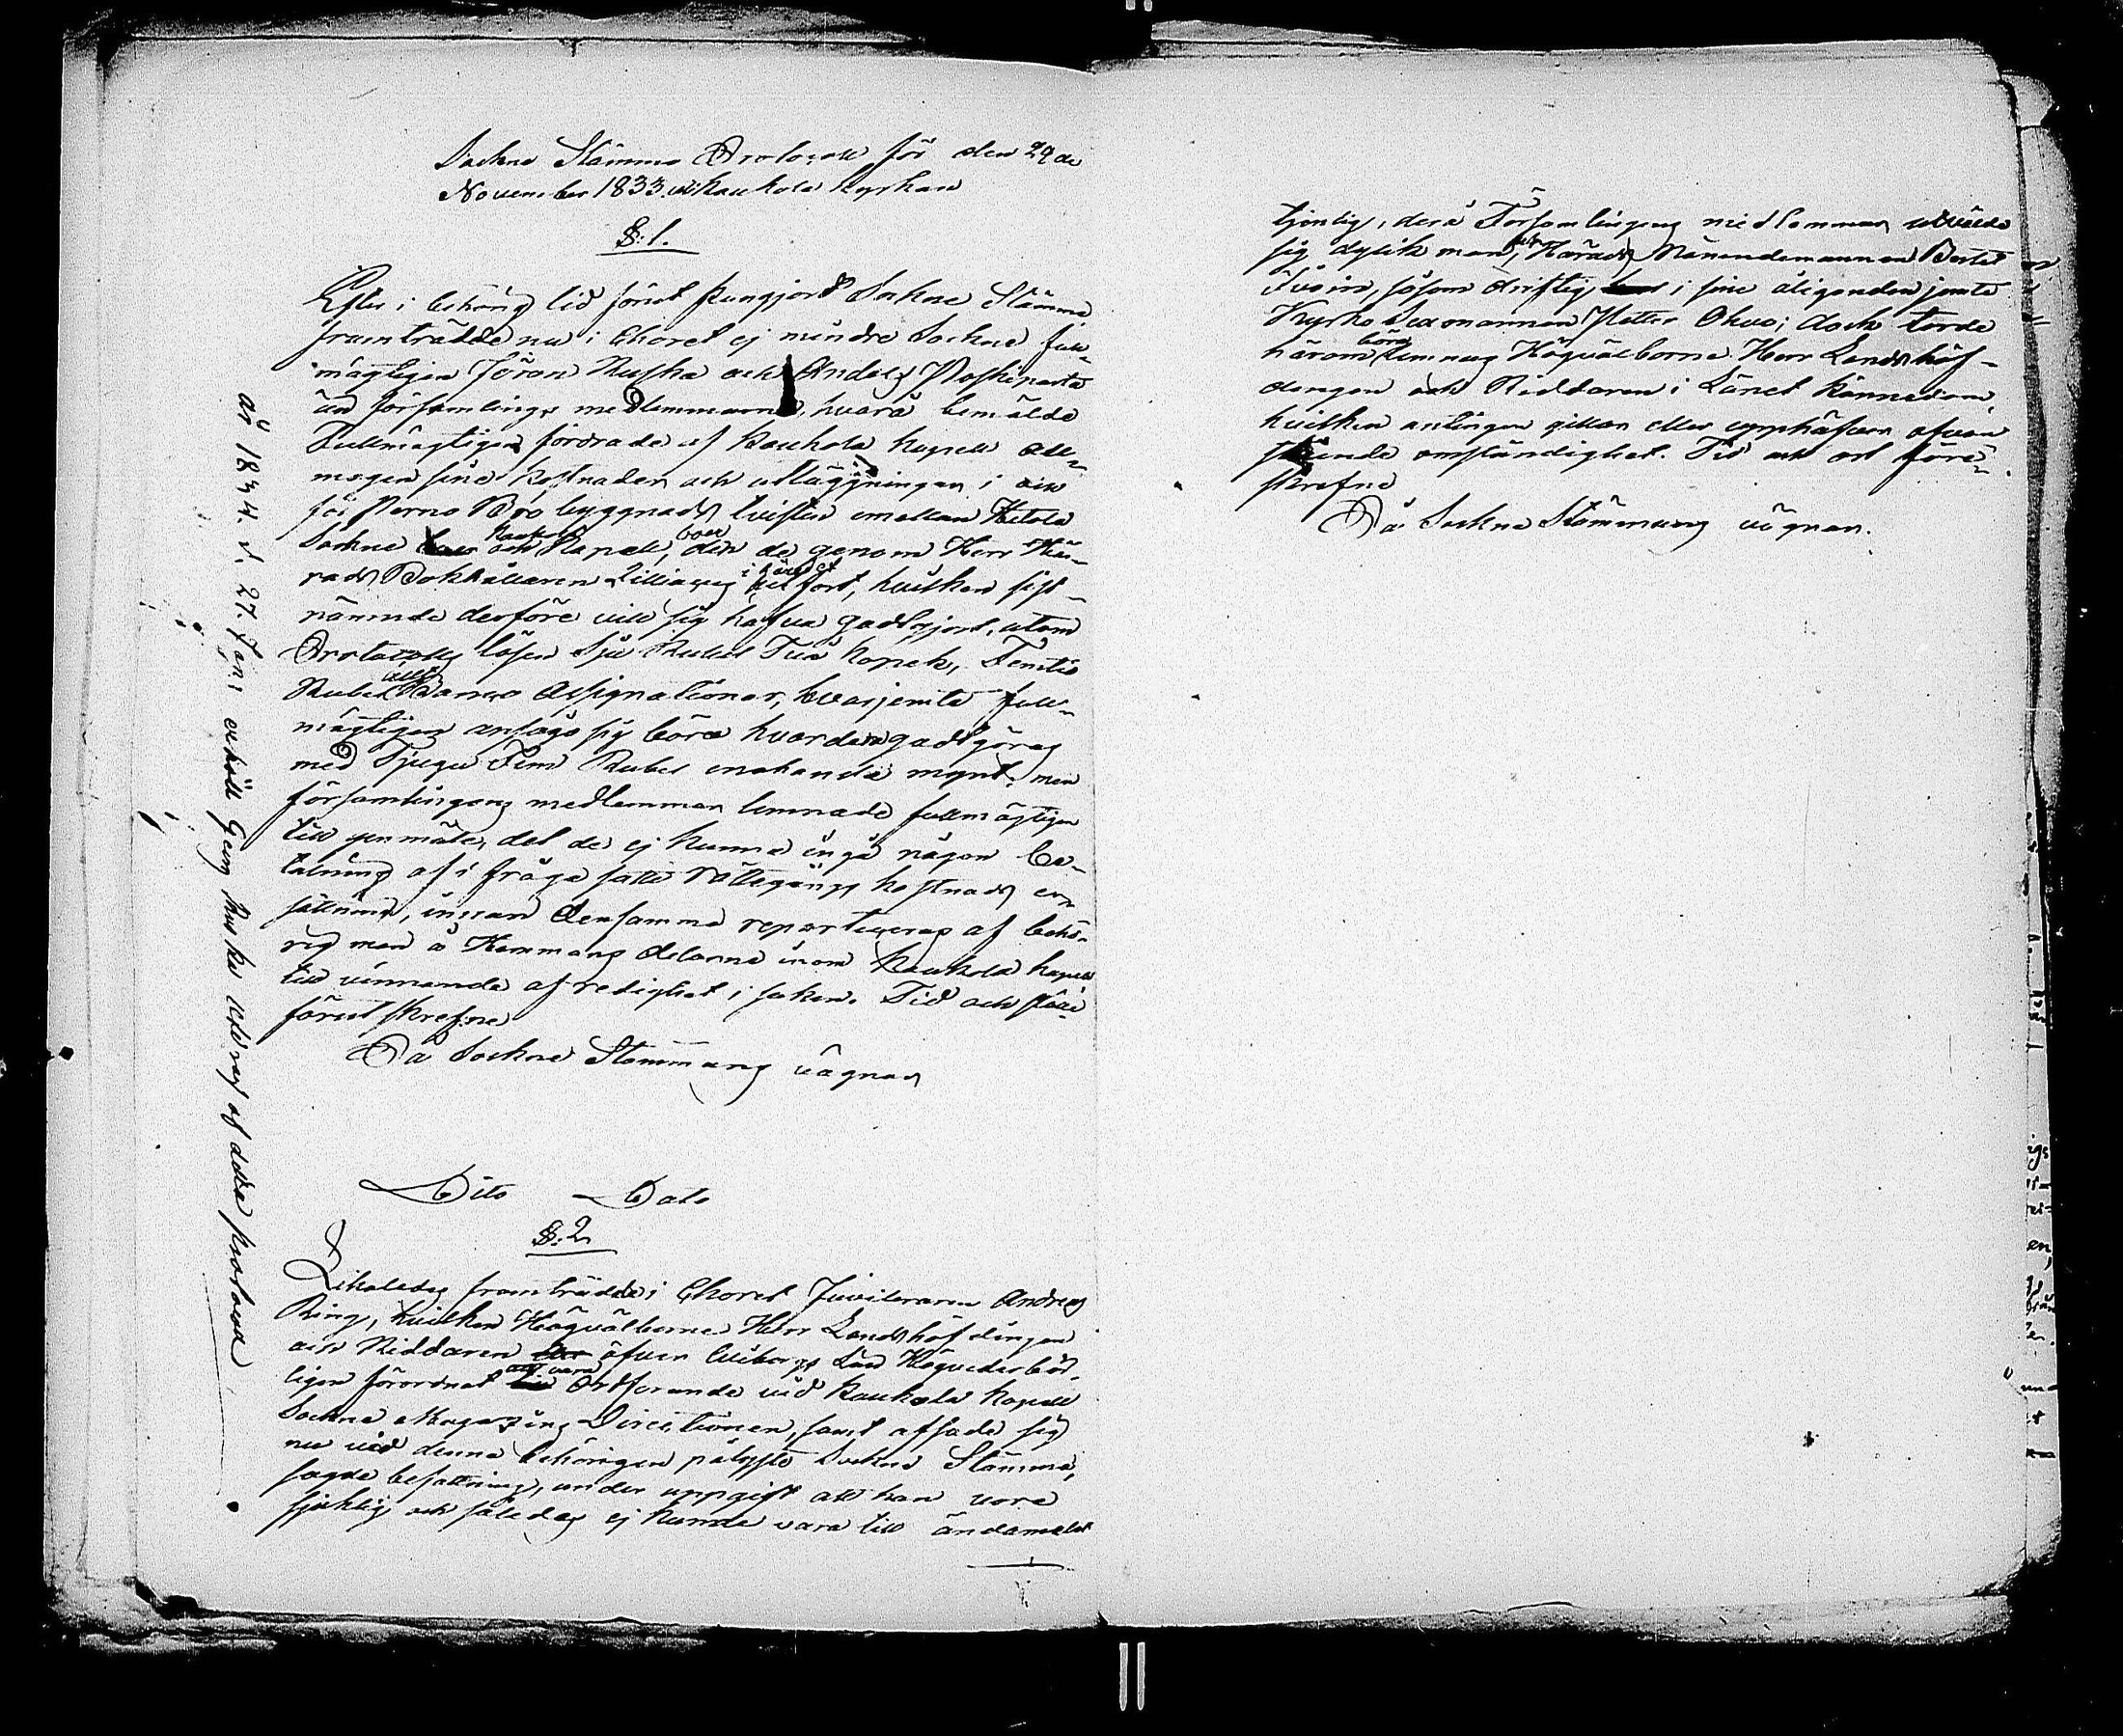 Sockne Stämmo Protocoll för den 29 de
November 1833 vid Kaukola Kyrkan
§: 1.
Efter i behörig tid förut kungjord Sockne Stämma
framträdde nu i Choret ej mindre Sockne full-
mägtigen Jöran Ruska och Anders Poskiparta
än församlings medlemmarne, hvarå bemälde
Fullmägtigen fordrade af Kaukola Kapell all-
mogen sine kostnader och utläggningar i och
för Perno Bro byggnads tvisten emellan Hitola
Sockne och Kaukola Kapell, den de genom Herr Hä-
rads Bokhållaren Lilliaveg i häradet utfört, hvilken sist-
nämnde derföre vill sig hafva godtgjord, utom
Protocolls lösen Sju Rubel Tuå Kopek, Femtio
Rubel allt Banco Assignationer, hvarjemte full-
mägtigen ansågo sig böra hvardera godtgöras
med Tjugu Fem Rubel enahanda mynt, men
församlingens medlemmar lemnade fullmägtigen
till genmäle, det de ej kunna ingå någon be-
talning af i fråga satte rättegångs kostnads er-
sättning, innan densamma reparteras af behö-
rig man å Hemmans delarne inom Kaukola Kapell
till vinnande af redighet i saken. Tid och ställe
förutskrefne
På Sockne Stämmans vägnar
Dito Dato
§: 2
Likaledes framträdde i Choret Juveleraren Andreas
Ring, hvilken Högvälborne Herr Landshöfdingen
och Riddaren öfver Wiborgs Län Högvederbör-
ligen förordnat att vara Ordförande vid Kaukola Kapell
Sockne Magazins Directionen, samt afsade sig
nu vid denna behörigen pålyste Sockne Stämma,
sagde befattning, under uppgift att han vore
sjuklig och således ej kunde vara till ändamålet
år 1834 d. 27. Janr erhöll Georg Ruska Utdrag af detta protocoll
tjenlig, derå Församlingens medlemmar utvalde
sig dylik man, Härads Nämndemannen Bertel
Ivoin, såsom driftig i sine åligganden jemte
Kyrko Sexmannen Petter Okvo; dock torde
härom böra lemnas Högvälborne Herr Landshöf-
dingen och Riddaren i Länet kännedom,
hvilken antingen gillar eller upphäfver ofvan
stående omständighet. Tid och ort före-
skrefne
På Sockne Stämmans vägnar.